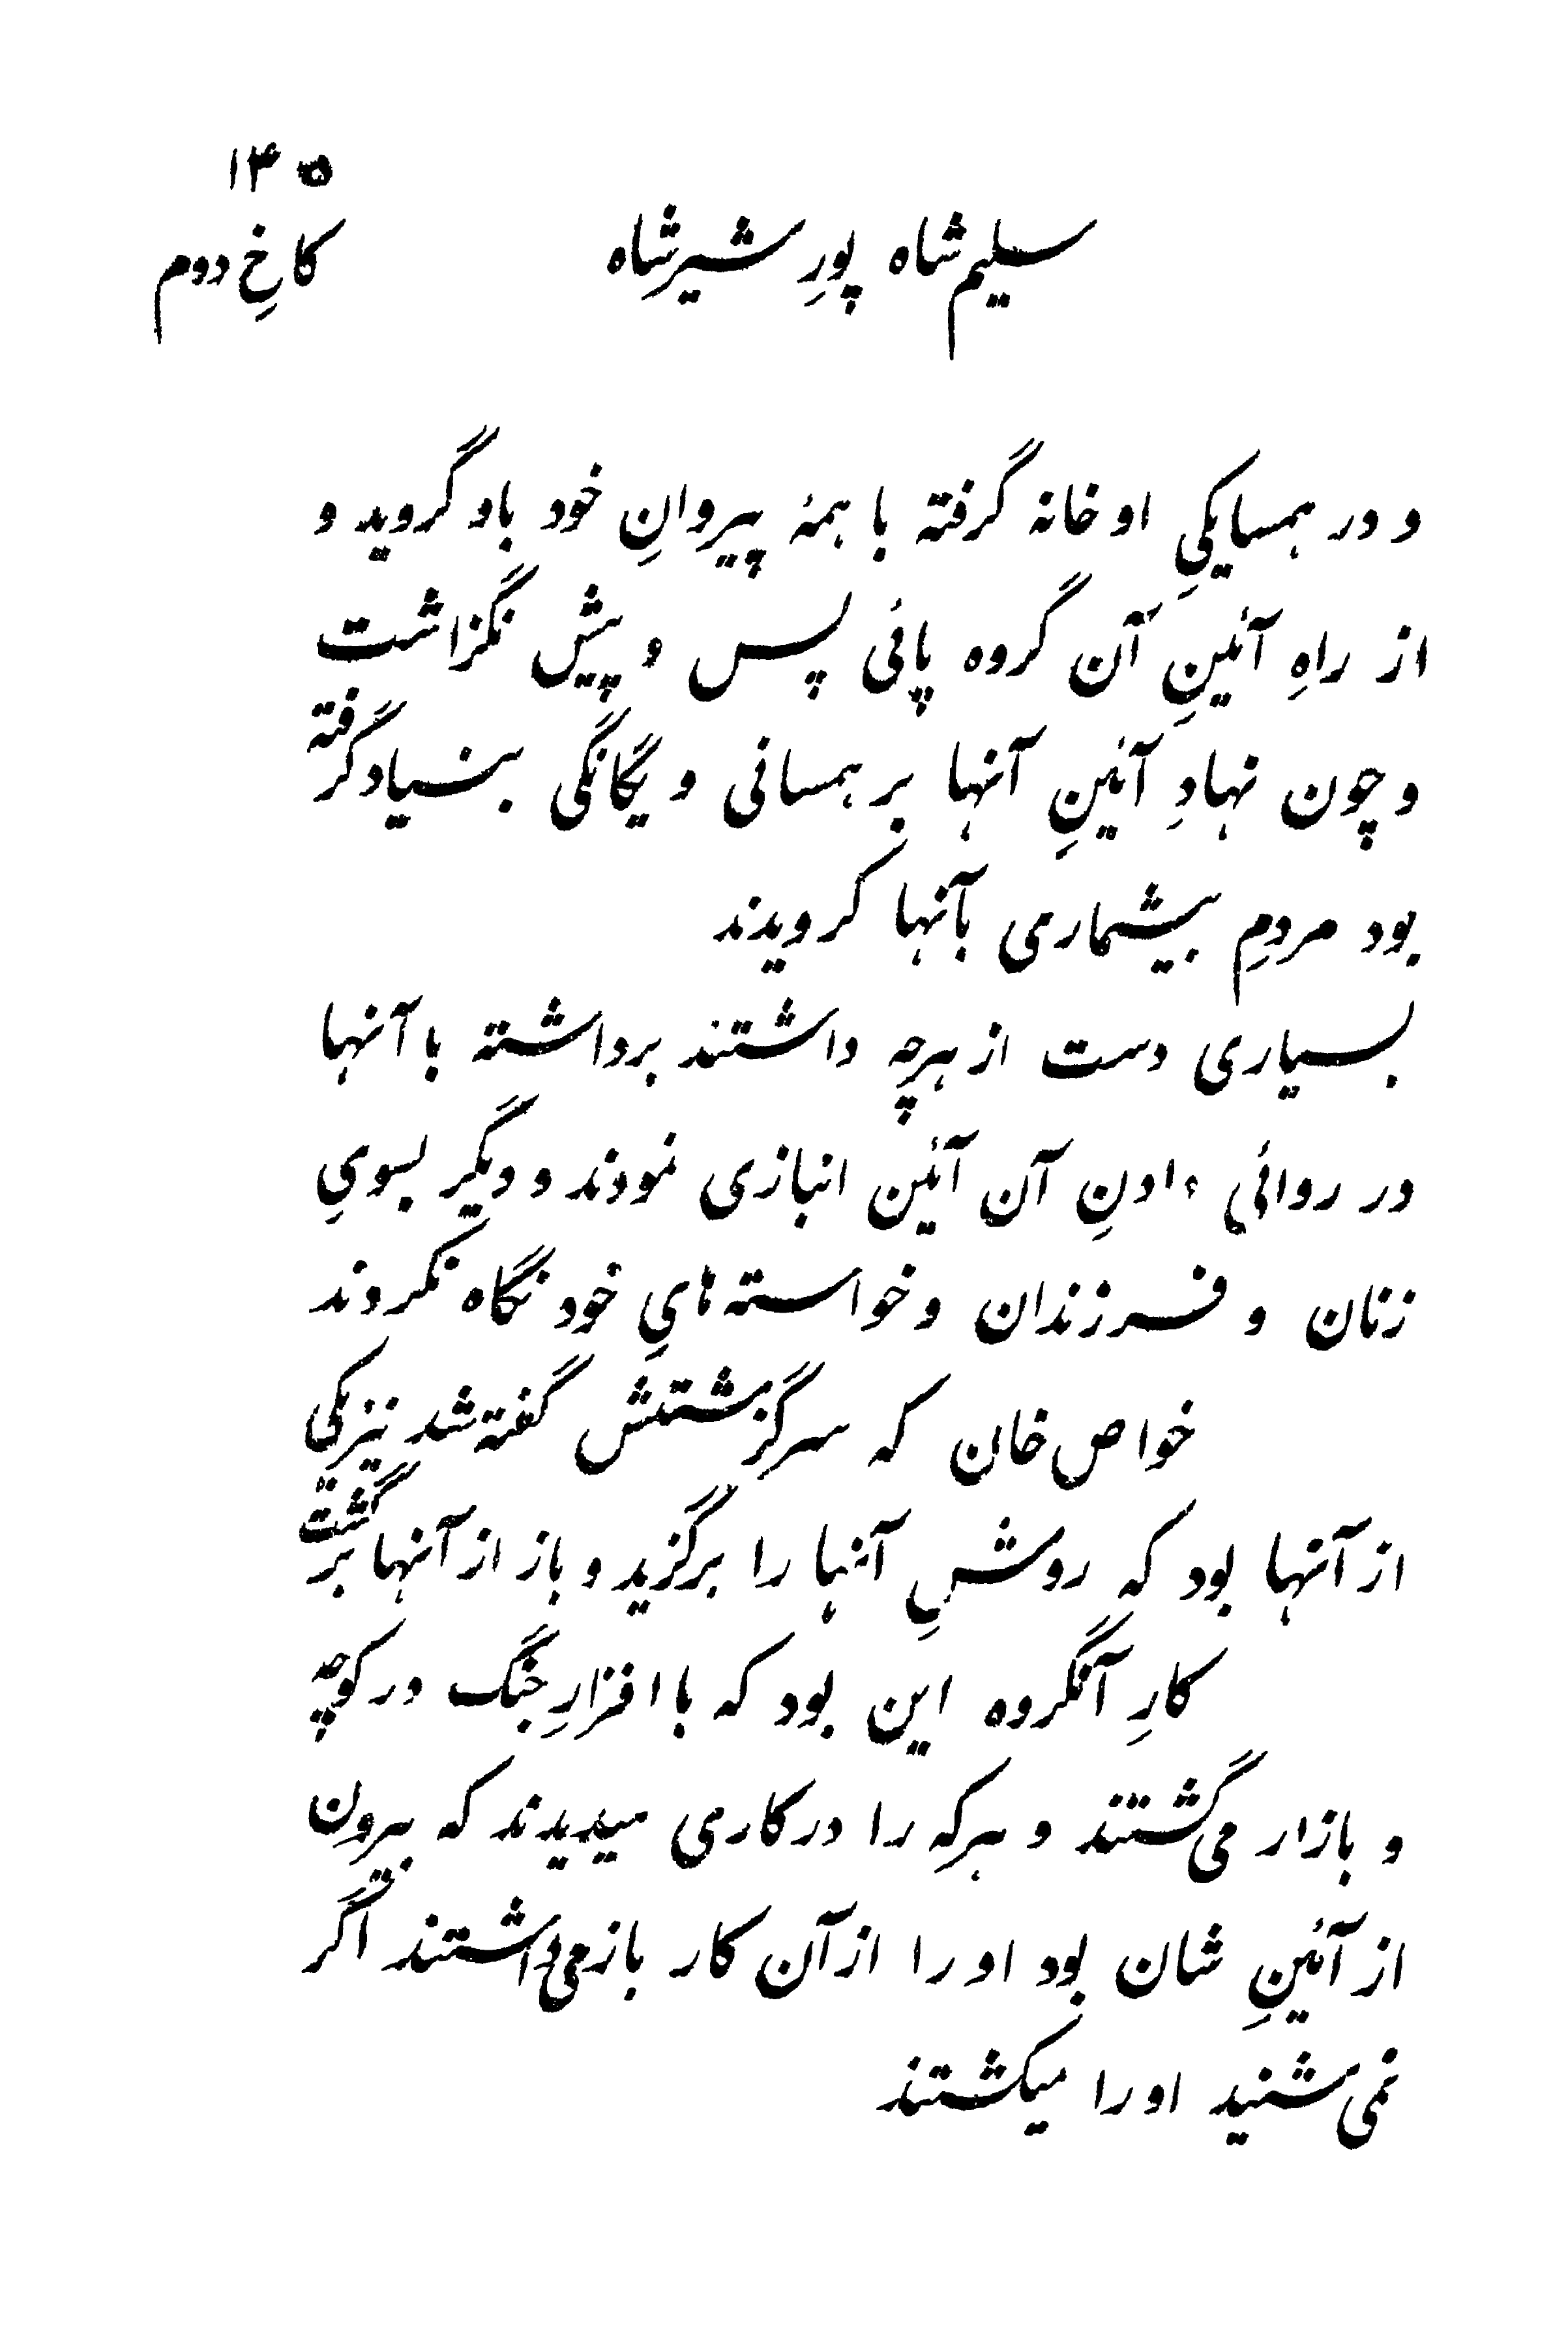 ۱۳۵
سلیم شاه پورِ شیر شاه
کاخِ دوم
و در همسایکیِ او خانه گرفته با همهٔ پیروانِ خود باو گروید و
از راهِ آئینِ آن گروه پائی پس و پیش نگزاشت
و چون نهادِ آئینِ آنها بر همسانی و یگانگی بنسیاد گرفته
بود مردمِ بیشماری بآنها کرویدند
بسیاری دست از هرچه داشتند برداشته با آنها
در روائی داونِ آن آئین انبازی نمودند و دیگر بسویِ
زنان و فرزندان و خواسته هایِ خود نگاه نکردند
خواص خان که سرگزشتش گفته شد نیز یکی
از آنها بود که روشِ آنها را برگزید و باز از آنها برگشت
کارِ آنگروه این بود که با افزارِ جنگ در کوچه
و بازار می گشتند و هرکه را در کاری میدیدند که بیرون
از آئینِ شان بود او را از آن کار باز می داشتند اگر
نمی شنید او را میکشتند